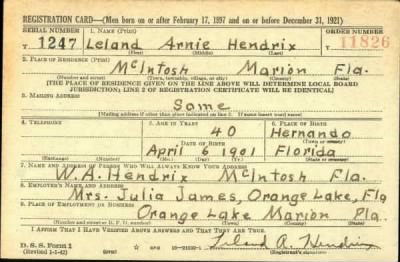 REGISTRATION CARD—(Men born on or after February 17, 1897 and on or before December 31, 1921)
SERIAL NUMBER 1. NAME (Print) ORDER NUMBER
T 1247 Leland Arnie Hendrix 11826
(First) (Middle) (Last)
2. PLACE OF RESIDENCE (Print)
McIntosh Marion Fla.
(Number and street) (Town, township, village, or city) (County) (State)
[THE PLACE OF RESIDENCE GIVEN ON THE LINE ABOVE WILL DETERMINE LOCAL BOARD
JURISDICTION; LINE 2 OF REGISTRATION CERTIFICATE WILL BE IDENTICAL]
3. MAILING ADDRESS
Same
[Mailing address if other than place indicated on line 2. If same insert word same]
4. TELEPHONE 5. AGE IN YEARS 6. PLACE OF BIRTH
40 Hernando
DATE OF BIRTH (Town or county)
April 6 1901 Florida
(Exchange) (Number) (Mo.) (Day) (Yr.) (State or country)
7. NAME AND ADDRESS OF PERSON WHO WILL ALWAYS KNOW YOUR ADDRESS
W. A. Hendrix McIntosh Fla.
8. EMPLOYER'S NAME AND ADDRESS
Mrs. Julia James, Orange Lake, Fla
9. PLACE OF EMPLOYMENT OR BUSINESS
Orange Lake Marion Fla.
(Number and street or R. F. D. number) (Town) (County) (State)
I AFFIRM THAT I HAVE VERIFIED ABOVE ANSWERS AND THAT THEY ARE TRUE.
D. S. S. Form 1
(Revised 1-1-42) Leland A. Hendrix
(Registrant's signature)